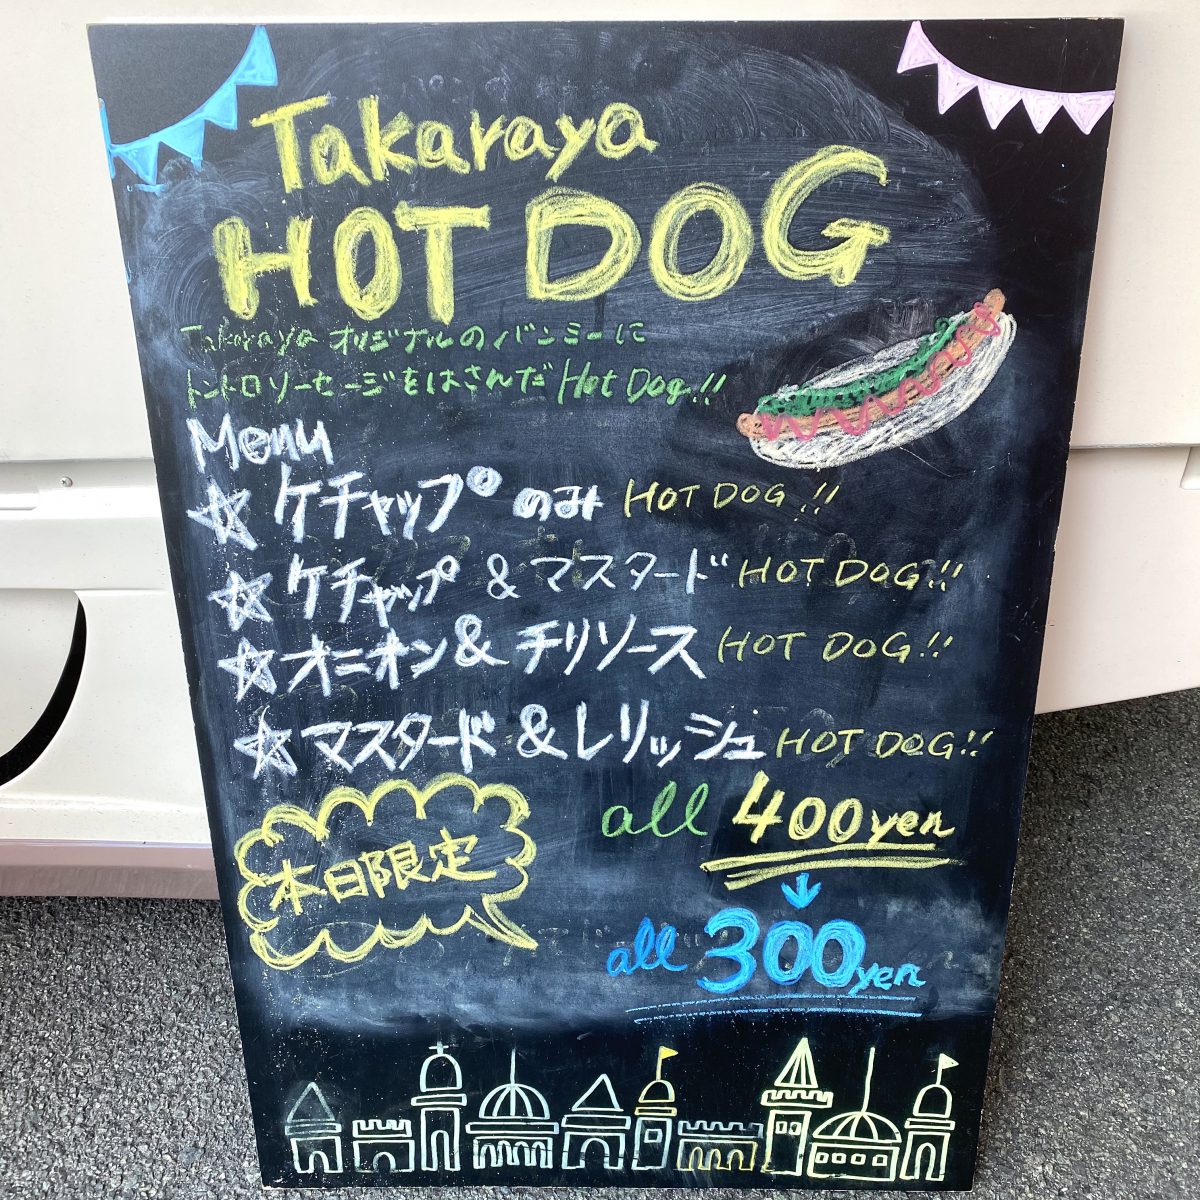 Takaraya
HOT DOG
Takaraya オリジナルのバンミーに
トントロソーセージをはさんだ Hot Dog!!
Menu
☆ ケチャップ のみ HOT DOG!!
☆ ケチャップ & マスタード HOT DOG!!
☆ オニオン & チリソース HOT DOG!!
☆ マスタード & レリッシュ HOT DOG!!
本日限定
all 400yen
↓
all 300yen